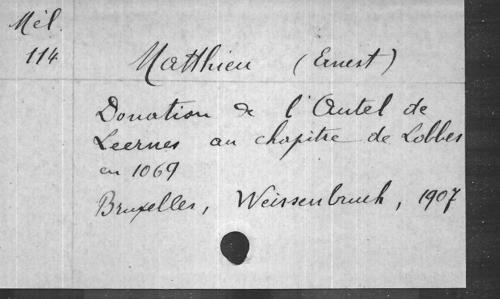 Mél.
114
Matthieu (Ernest)
Donation de l'Autel de
Leernes au chapitre de Lobbes
en 1069
Bruxelles, Weissenbruch, 1907